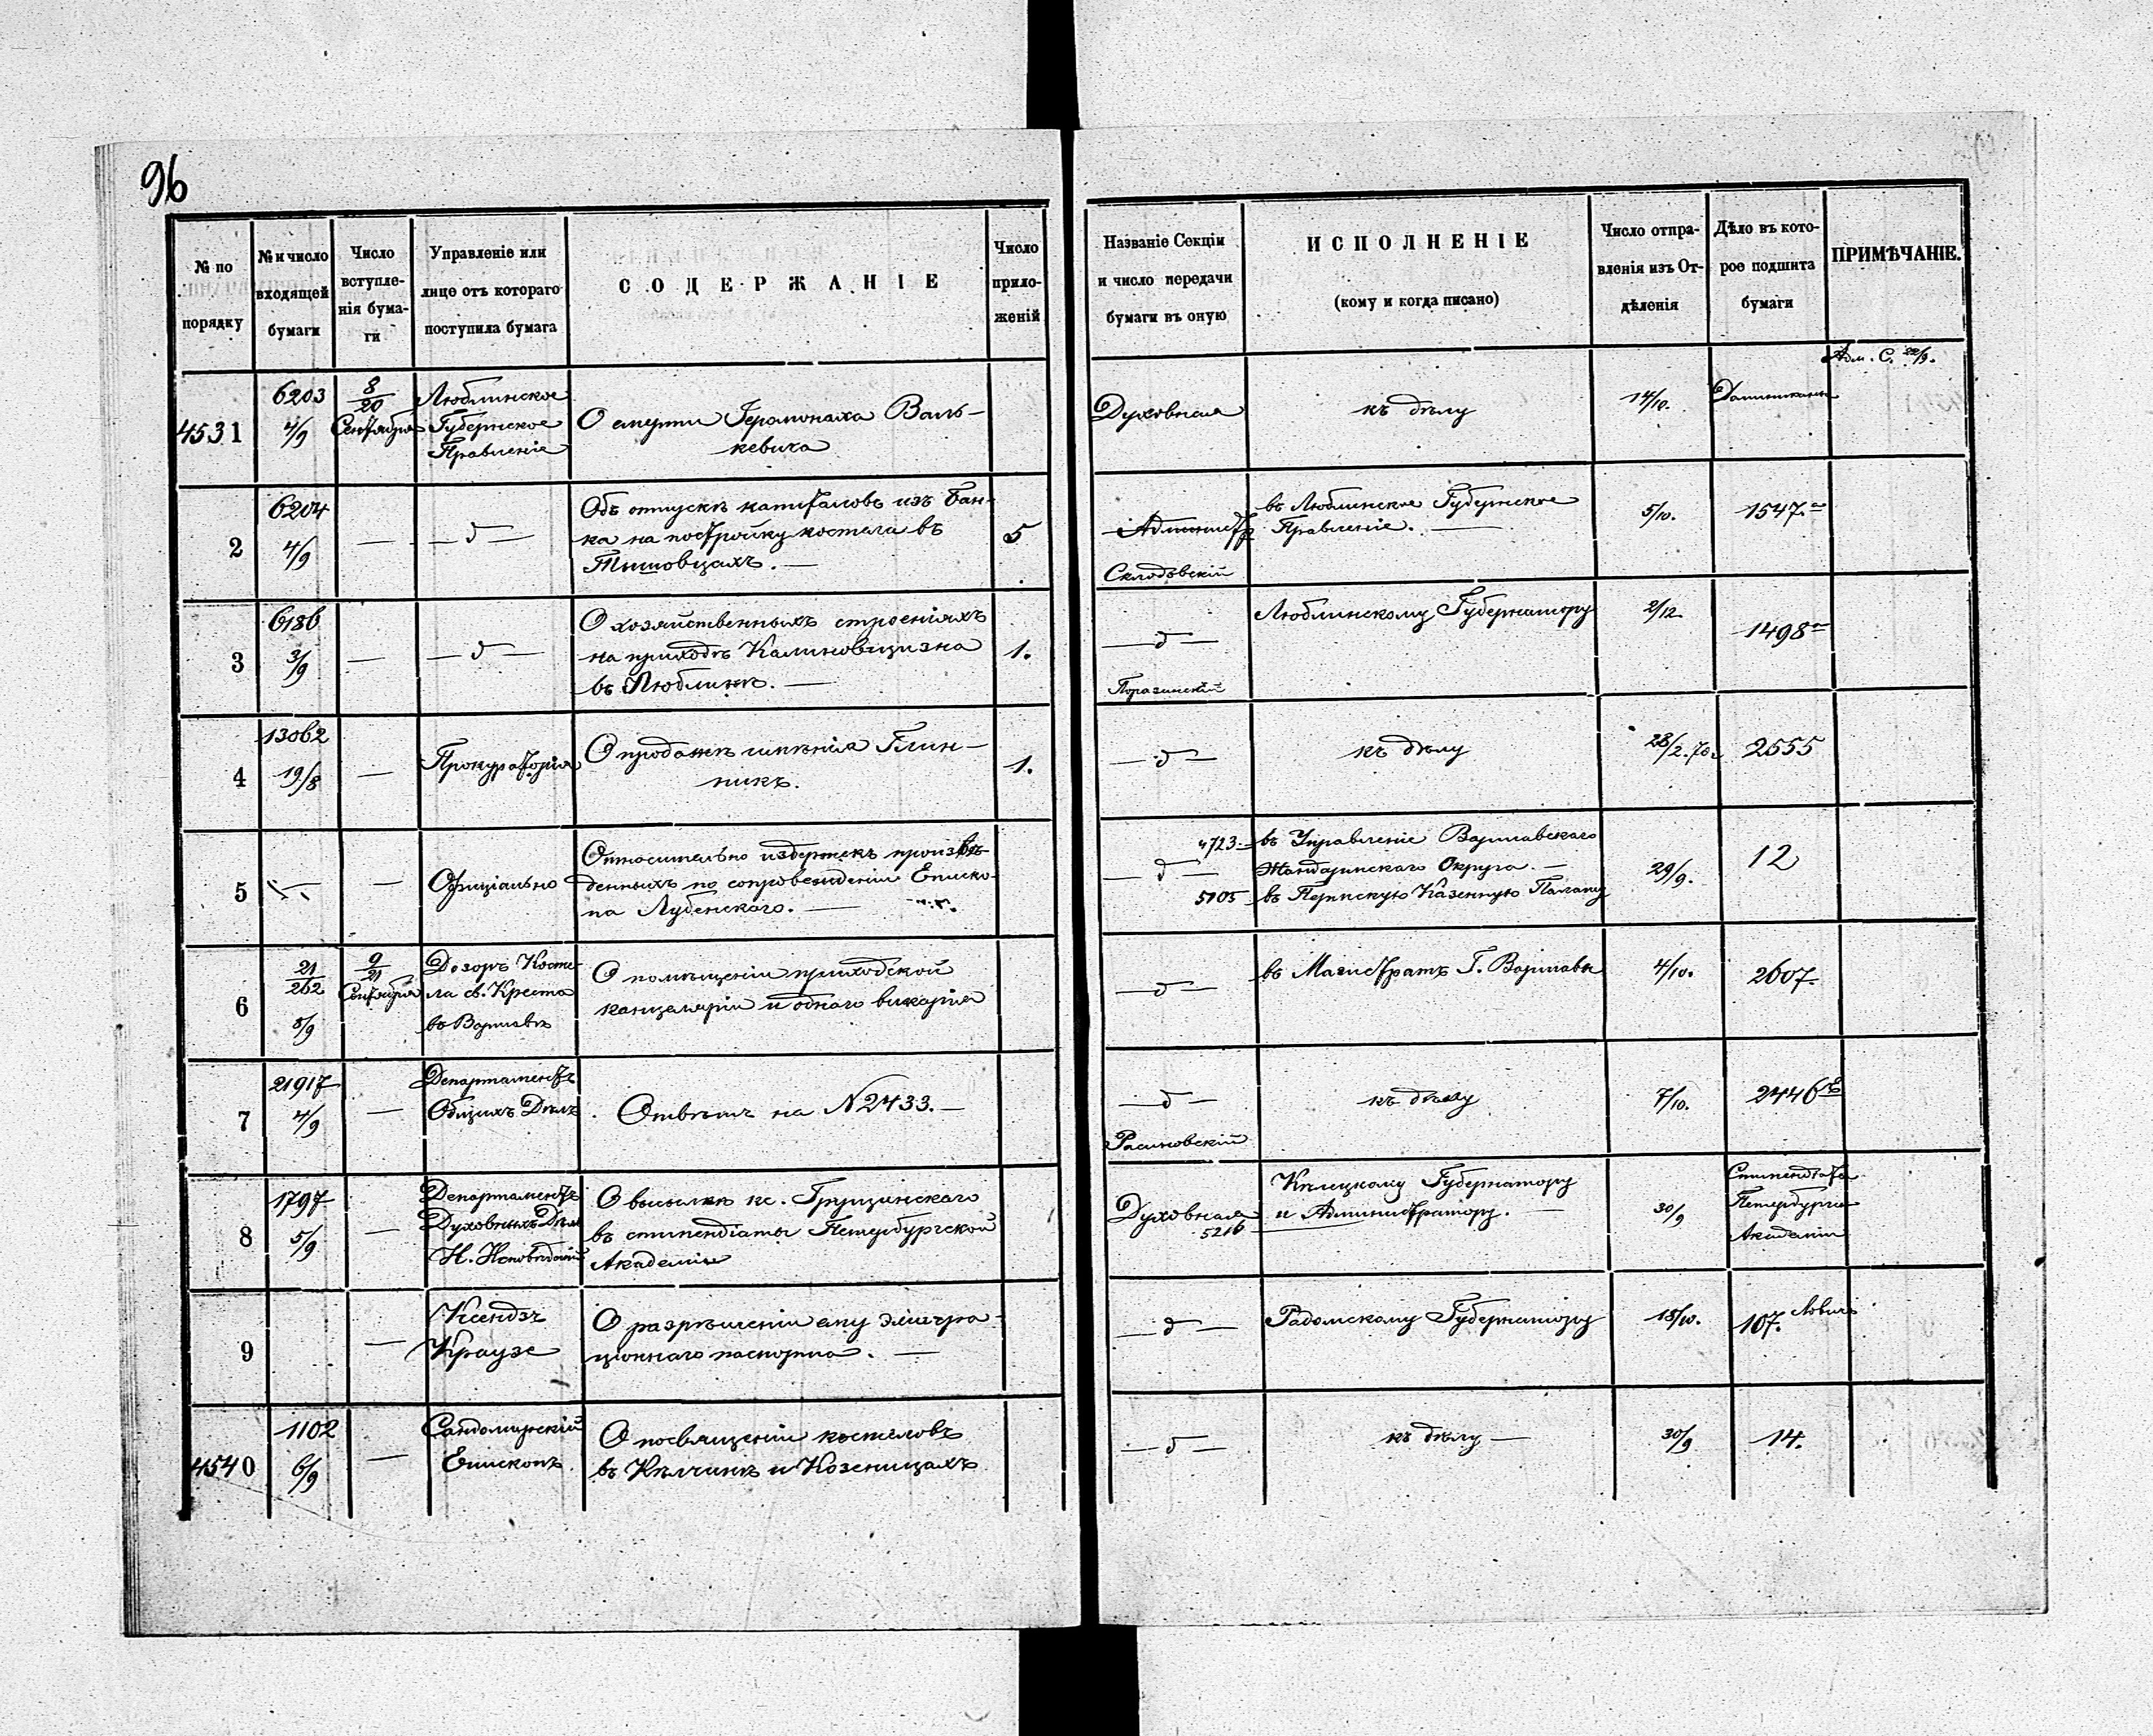 96
№ по порядку
№ и число входящей бумаги
Число вступле-
нія бума-
ги
Управленіе или
лице отъ котораго
поступила бумага
СОДЕРЖАНІЕ
Число
прило-
женій
Названіе Секціи
и число передачи
бумаги въ оную
ИСПОЛНЕНІЕ
(кому и когда писано)
Число отпра-
вленія изъ От-
дѣленія
Дѣло въ кото-
рое подшита
бумаги
ПРИМѢЧАНІЕ.
4531
6203
4/9
8/20
Сентября
Люблинское
Губернское
Правленіе
О смерти Іеромонаха Валь-
кевича
Духовная
къ дѣлу
14/10.
Адм. С. 22/9.
2
6204
4/9
— д —
Объ отпускѣ капиталовъ изъ Бан-
ка на постройку костела въ
Тышовцахъ. —
5
Администр
Склодовскій
въ Люблинское Губернское
Правленіе. —
5/10.
1547.
3
6186
3/9
— д —
О хозяйственныхъ строеніяхъ
на приходѣ Калиновщизна
въ Люблинѣ. —
1.
— д —
Поразинскій
Люблинскому Губернатору
2/12.
1498
4
13062
19/8
Прокураторія
О продажѣ имѣнія Глин-
никъ.
1.
— д —
къ дѣлу
28/2.76.
2555
5
Офиціально
Относительно издержекъ произве-
денныхъ по сопровожденіи Еписко-
па Лубенскаго. —
4723.
— д —
5105
въ Управленіе Варшавскаго
Жандармскаго Округа. —
въ Пермскую Казенную Палату
29/9.
12
6
21/262
8/9
9/21
Сентября
Дозоръ Косте-
ла св. Креста
въ Варшавѣ
О помѣщеніи приходской
канцеляріи и одного викарія
— д —
въ Магистратъ Г. Варшавы
4/10.
2607.
7
21917
4/9
Департаментъ
Общихъ Дѣлъ
Отвѣтъ на N 2433. —
— д —
Расиновскій
къ дѣлу
7/10.
2446
8
1797
5/9
Департаментъ
Духовныхъ Дѣлъ
И. Исповѣданій
О высылкѣ кс. Грущинскаго
въ стипендіаты Петербургской
Академіи
Духовная
5216
Кѣлецкому Губернатору
и Администратору. —
30/9
Стипендіаты
Петербургск
Академіи
9
Ксендзъ
Краузе
О разрѣшеніи ему эмигра-
ціоннаго паспорта. —
— д —
Радомскому Губернатору
18/10.
107.
4540
1102
6/9
Сандомирскій
Епископъ
О посвященіи костеловъ
въ Кѣлчинѣ и Козеницахъ
— д —
къ дѣлу —
30/9
14.